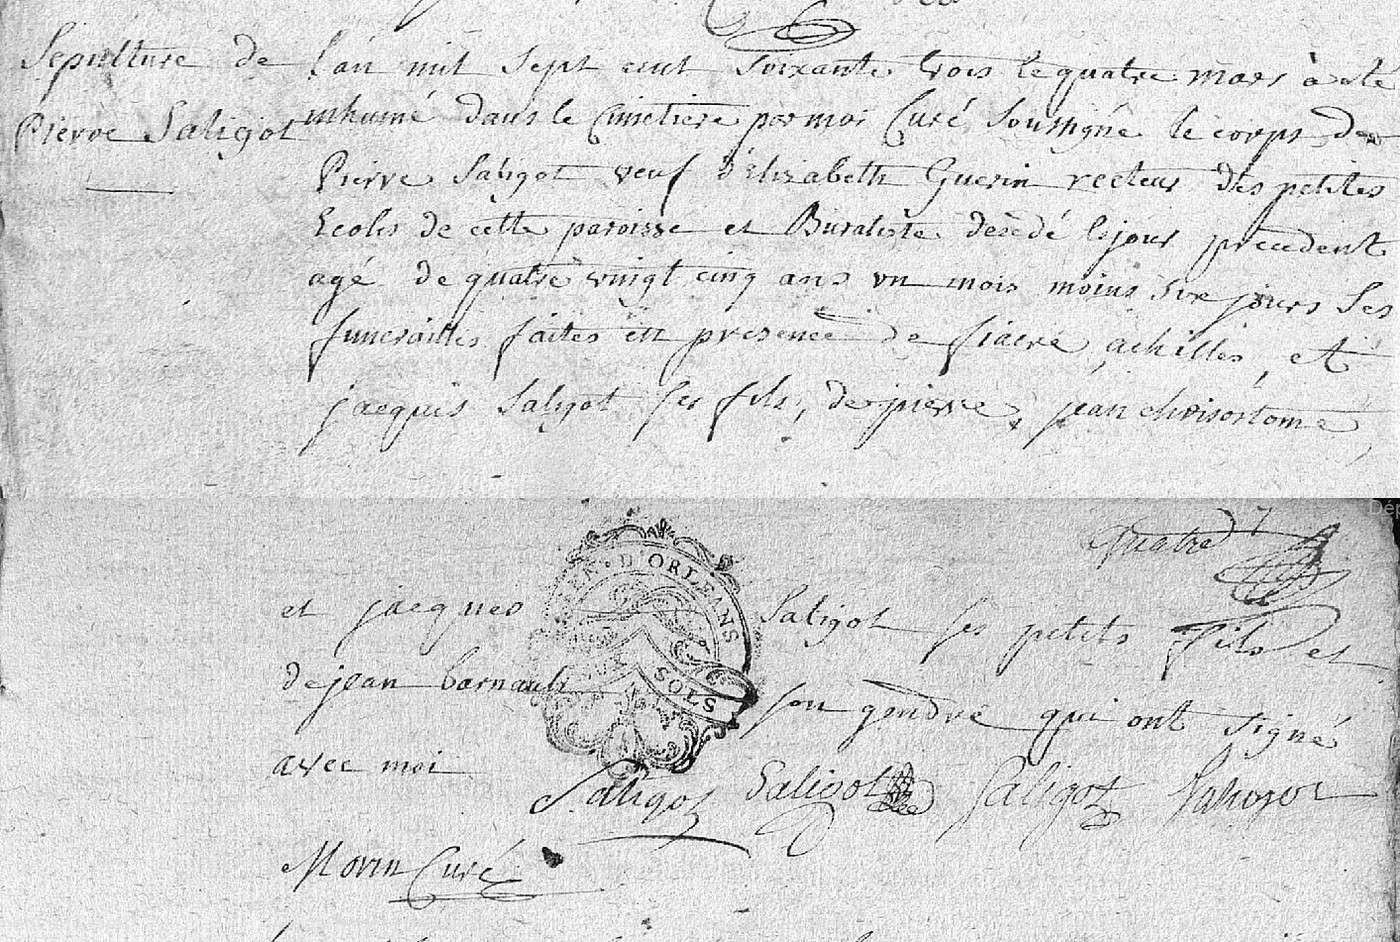 Sepulture de
Pierre Saligot
L'an mil sept cent soixante trois le quatre mars à eté
inhumé dans le Cimetiere par moi Curé soussigné le corps de
Pierre Saligot veuf d'Elizabeth Guerin recteur des petites
Ecoles de cette paroisse et Buraliste decedé le jour precedent
agé de quatre vingt cinq ans un mois moins six jours Ses
funerailles faites en presence de fiacre, achilles, et
jacques Saligot ses fils, de pierre, jean chrisostome,
Quatre
et jacques Saligot ses petits fils et
de jean barnault son gendre qui ont signé
avec moi
Saligot Saligot Saligot Saligot
Morin Curé
D'ORLEANS
SOLS